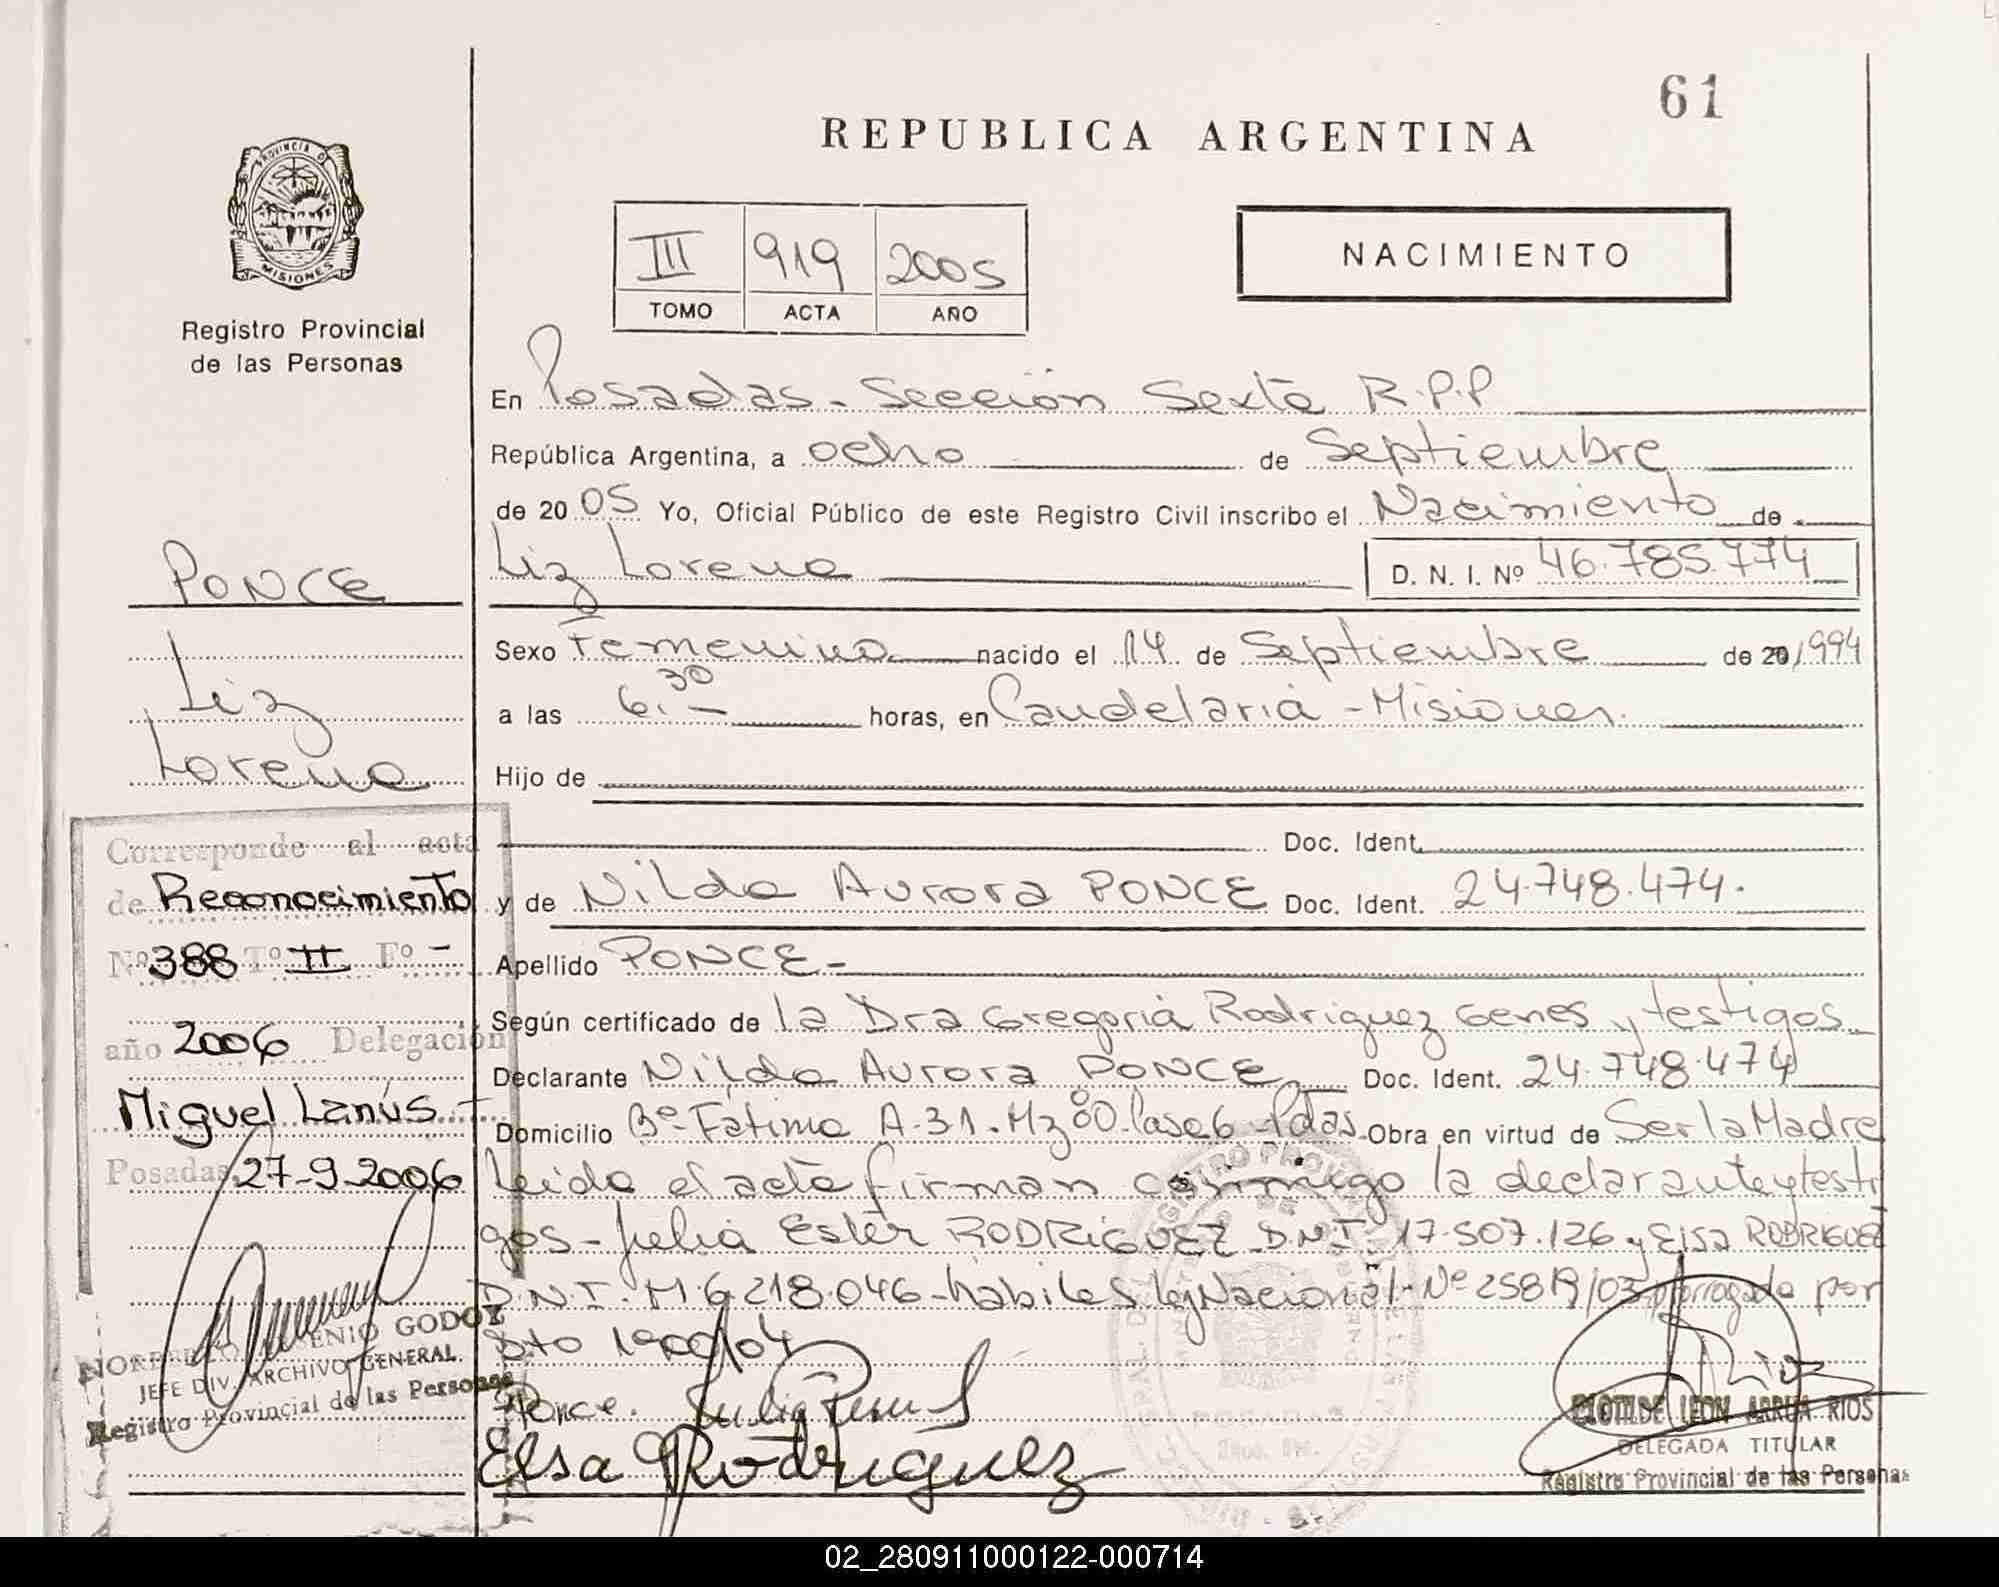 61
REPUBLICA ARGENTINA
PROVINCIA DE
MISIONES
Registro Provincial
de las Personas
III 919 2005
TOMO ACTA AÑO
NACIMIENTO
En Posadas - Sección Sexta R.P.P
República Argentina, a ocho de Septiembre
de 2005 Yo, Oficial Público de este Registro Civil inscribo el Nacimiento de
Liz Lorena D. N. I. Nº 46.785.774
Sexo Femenino nacido el 14 de Septiembre de 20 1994
a las 6.30 horas, en Candelaria - Misiones.
Hijo de
Doc. Ident.
y de Nilda Aurora PONCE Doc. Ident. 24.748.474.
Apellido PONCE-
Según certificado de la Dra Gregoria Rodriguez Genes y testigos
Declarante Nilda Aurora PONCE Doc. Ident. 24.748.474
Domicilio Bº Fátima A.31. Mz 80 Casa 6 - Pdas. Obra en virtud de Ser la Madre
Leida el acta firman conmigo la declarante y testi
gos - Julia Ester RODRIGUEZ D.N.I. 17.507.126 y Elsa RODRIGUEZ
D.N.I. M.6.218.046 - hábiles ley Nacional - Nº 25819/03 prorrogada por
Dto 1900/04
Ponce.
Elsa Rodriguez
CLOTILDE LEON ARRUA RIOS
DELEGADA TITULAR
Registro Provincial de las Personas
PONCE
Liz
Lorena
Corresponde al acta
de Reconocimiento
Nº 388 Tº II Fº -
año 2006 Delegación
Miguel Lanús
Posadas 27-9-2006
GODOY
JEFE DIV. ARCHIVO GENERAL
Registro Provincial de las Personas
POSADAS
02_280911000122-000714